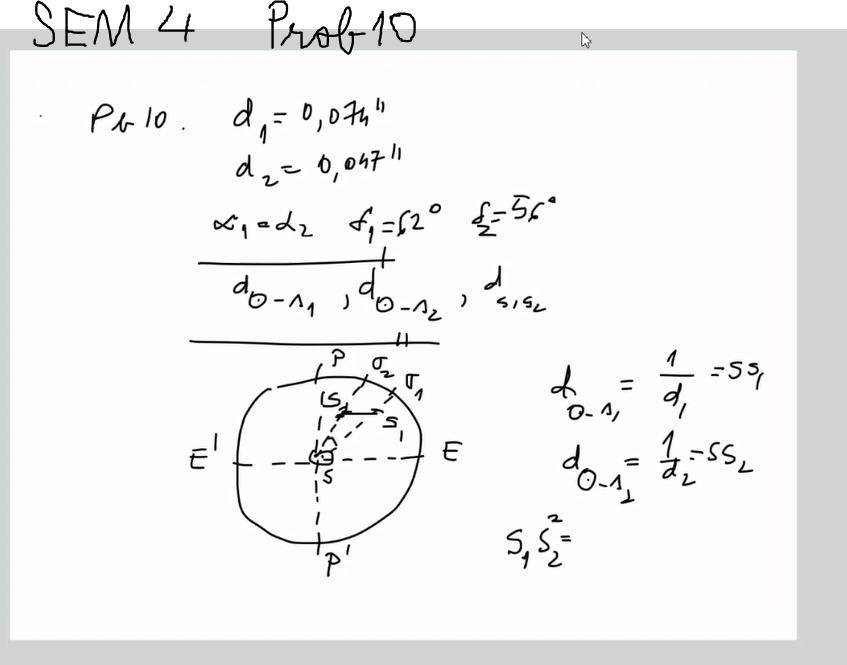 SEM 4 Prob 10
Pb 10. d₁ = 0,074"
d₂ = 0,047"
α₁ = α₂ δ₁ = 62° δ₂ = 56°
d⊙-s₁ , d⊙-s₂ , d s₁s₂
P σ₂ σ₁
S₂ S₁
E' S E
P'
d⊙-s₁ = 1/d₁ = SS₁
d⊙-s₂ = 1/d₂ = SS₂
S₁S₂² =